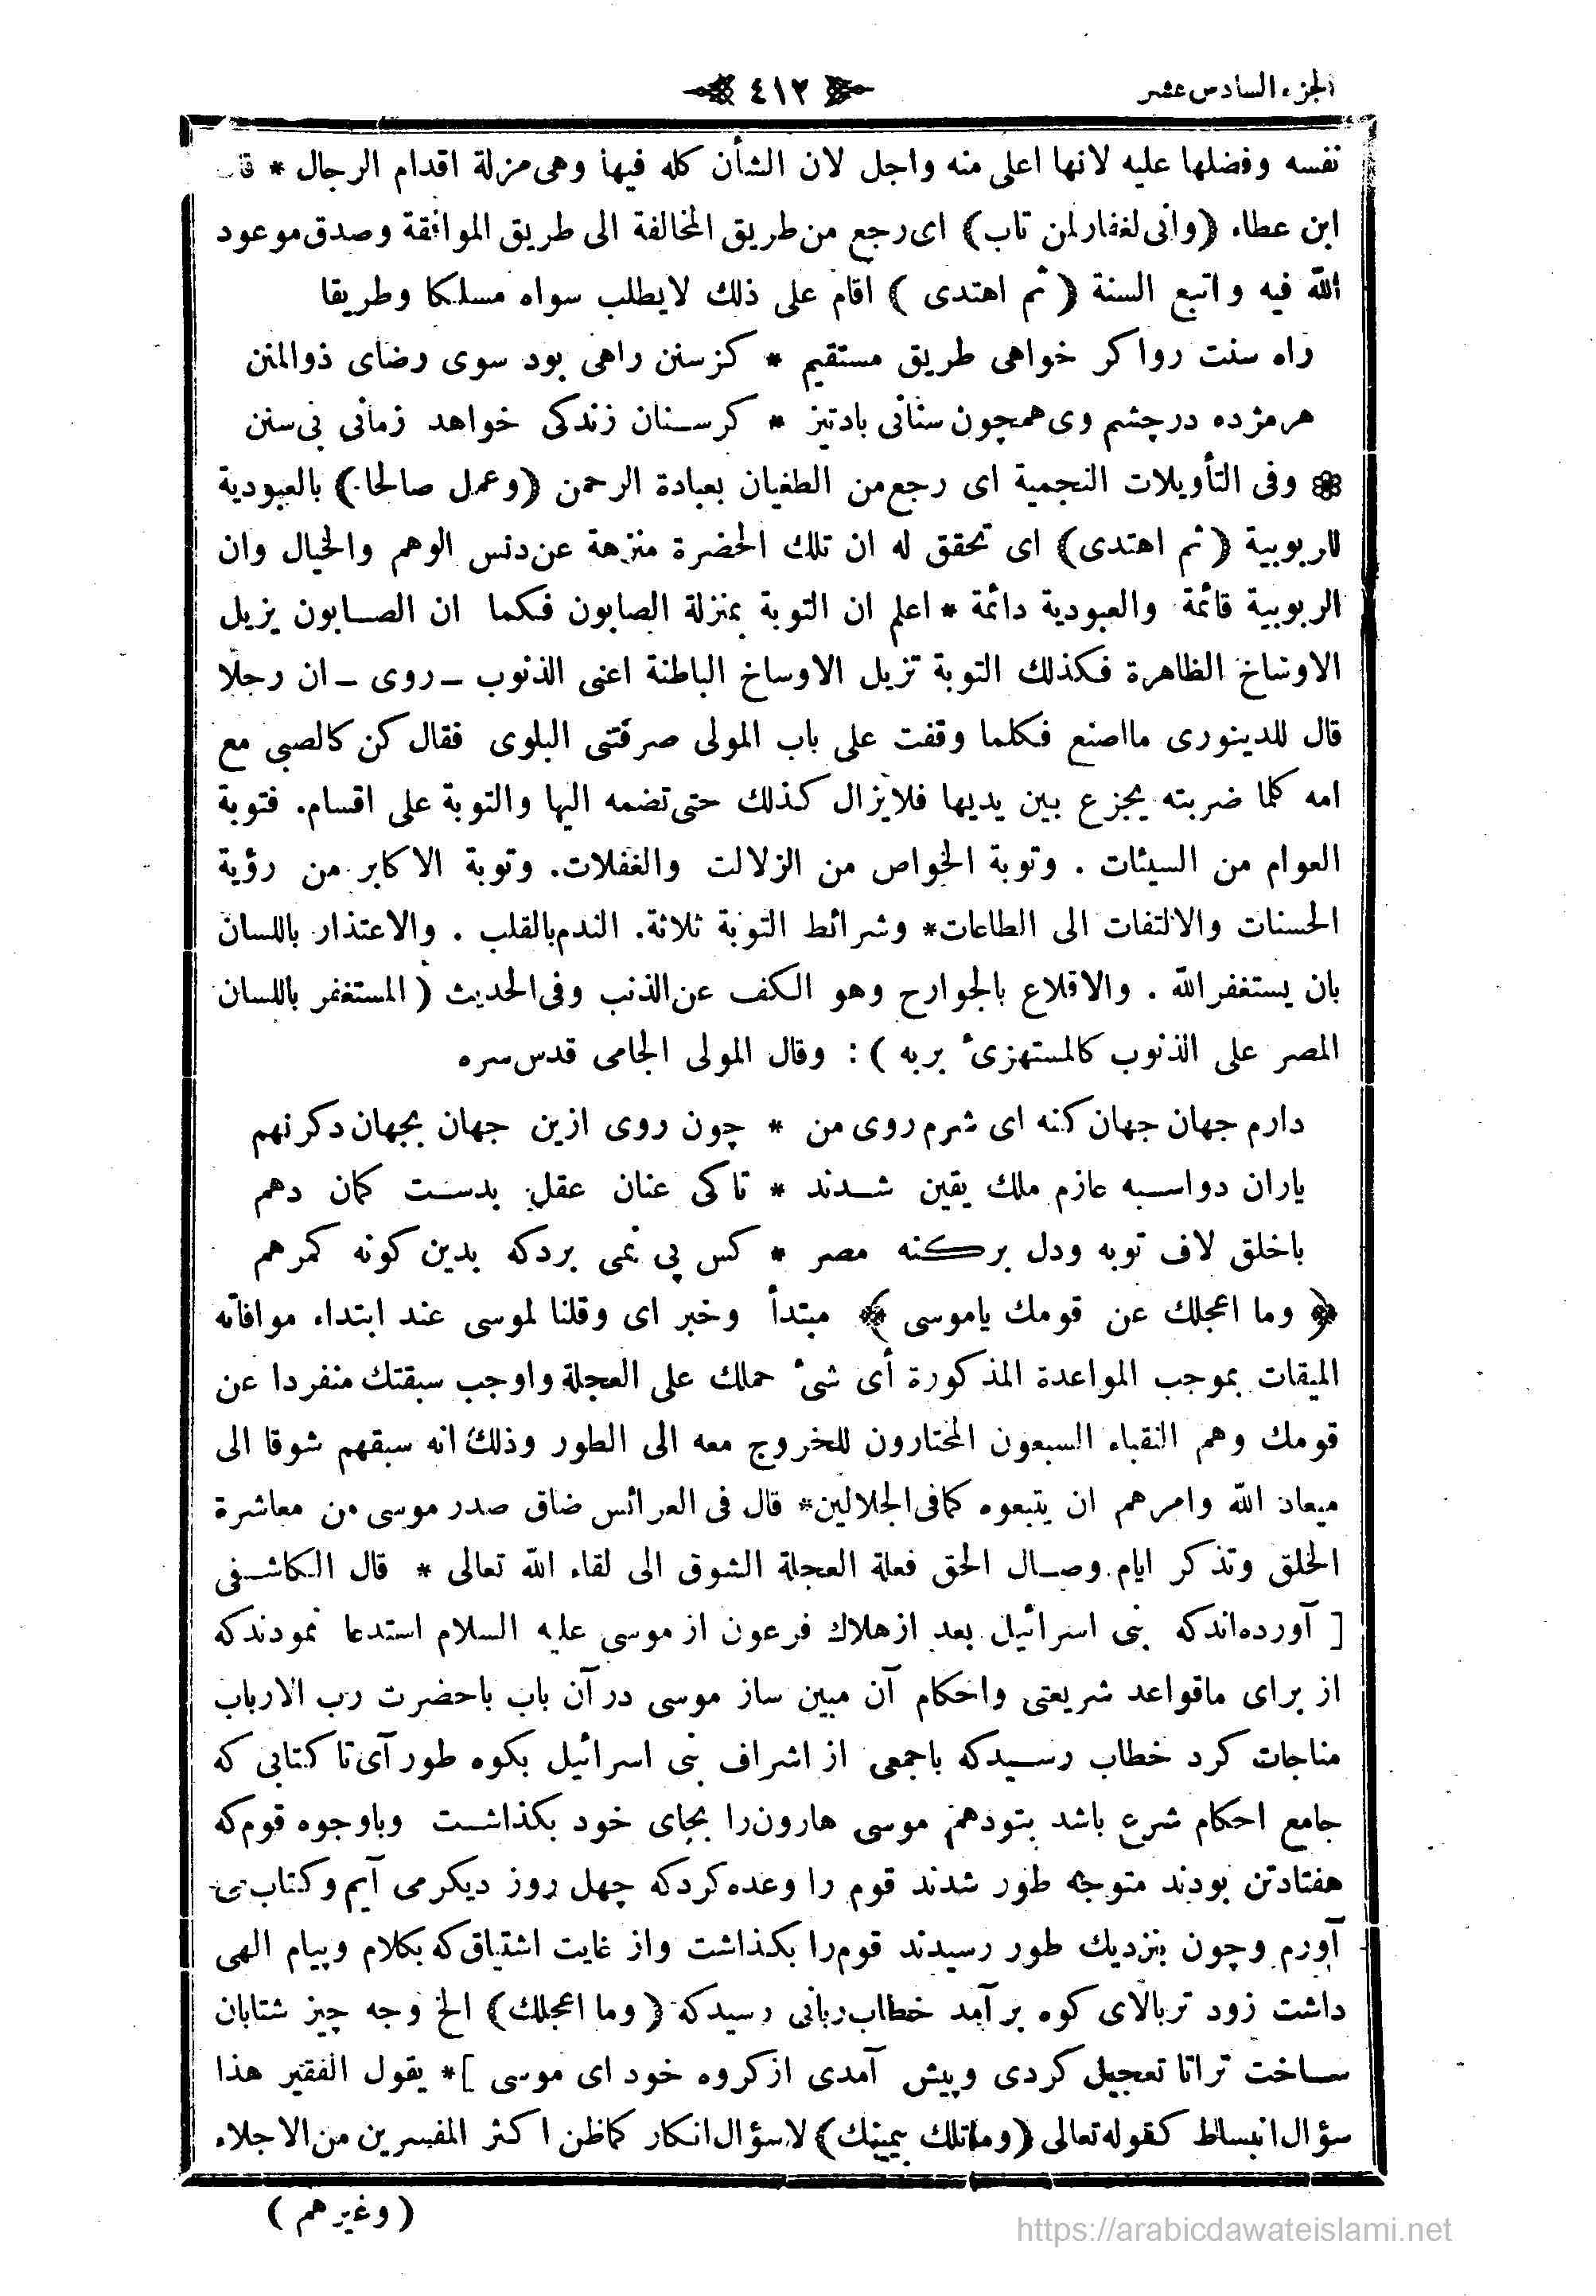 الجزء السادس عشر
٤١٢
نفسه وفضلها عليه لانها اعلى منه واجل لان الشأن كله فيها وهى مزلة اقدام الرجال * قال
ابن عطاء (وانى لغفار لمن تاب) اى رجع من طريق المخالفة الى طريق الموافقة وصدق موعود
الله فيه واتبع السنة (ثم اهتدى) اقام على ذلك لايطلب سواه مسلكا وطريقا
راه سنت رواكر خواهى طريق مستقيم * كزسنن راهى بود سوى رضاى ذوالمنن
هر مژده درچشم وى همچون سنانى بادتيز * كرسنان زندكى خواهد زمانى بى سنن
وفى التأويلات النجمية اى رجع من الطغيان بعبادة الرحمن (وعمل صالحا) بالعبودية
للربوبية (ثم اهتدى) اى تحقق له ان تلك الحضرة منزهة عن دنس الوهم والخيال وان
الربوبية قائمة والعبودية دائمة * اعلم ان التوبة بمنزلة الصابون فكما ان الصابون يزيل
الاوساخ الظاهرة فكذلك التوبة تزيل الاوساخ الباطنة اعنى الذنوب ـ روى ـ ان رجلا
قال للدينورى مااصنع فكلما وقفت على باب المولى صرفتنى البلوى فقال كن كالصبى مع
امه كلما ضربته يجزع بين يديها فلايزال كذلك حتى تضمه اليها والتوبة على اقسام. فتوبة
العوام من السيئات . وتوبة الخواص من الزلالت والغفلات. وتوبة الاكابر من رؤية
الحسنات والالتفات الى الطاعات* وشرائط التوبة ثلاثة. الندم بالقلب . والاعتذار باللسان
بان يستغفر الله . والاقلاع بالجوارح وهو الكف عن الذنب وفى الحديث (المستغفر باللسان
المصر على الذنوب كالمستهزئ بربه) : وقال المولى الجامى قدس سره
دارم جهان جهان كنه اى شرم روى من * چون روى ازين جهان بجهان دكر نهم
ياران دواسبه عازم ملك يقين شدند * تاكى عنان عقل بدست كمان دهم
باخلق لاف توبه ودل بركنه مصر * كس پى نمى بردكه بدين كونه كمرهم
﴿ وما اعجلك عن قومك ياموسى ﴾ مبتدأ وخبر اى وقلنا لموسى عند ابتداء موافاته
الميقات بموجب المواعدة المذكورة أى شىء حملك على العجلة واوجب سبقتك منفردا عن
قومك وهم النقباء السبعون المختارون للخروج معه الى الطور وذلك انه سبقهم شوقا الى
ميعاد الله وامرهم ان يتبعوه كمافى الجلالين* قال فى العرائس ضاق صدر موسى من معاشرة
الخلق وتذكر ايام وصال الحق فعلة العجلة الشوق الى لقاء الله تعالى * قال الكاشفى
[ آورده اندكه بنى اسرائيل بعد ازهلاك فرعون از موسى عليه السلام استدعا نمودندكه
از براى ماقواعد شريعتى واحكام آن مبين ساز موسى در آن باب باحضرت رب الارباب
مناجات كرد خطاب رسيدكه باجمعى از اشراف بنى اسرائيل بكوه طور آى تا كتابى كه
جامع احكام شرع باشد بتودهم موسى هارون را بجاى خود بكذاشت وباوجوه قوم كه
هفتادتن بودند متوجه طور شدند قوم را وعده كردكه چهل روز ديكر مى آيم وكتاب مى
آورم وچون بنزديك طور رسيدند قوم را بكذاشت واز غايت اشتياق كه بكلام وپيام الهى
داشت زود تربالاى كوه برآمد خطاب ربانى رسيدكه (وما اعجلك) الخ وچه چيز شتابان
ساخت تراتا تعجيل كردى وپيش آمدى ازكروه خود اى موسى ]* يقول الفقير هذا
سؤال انبساط كقوله تعالى (وماتلك بيمينك) لاسؤال انكار كماظن اكثر المفسرين من الاجلاء
(وغيرهم)
https://arabicdawateislami.net